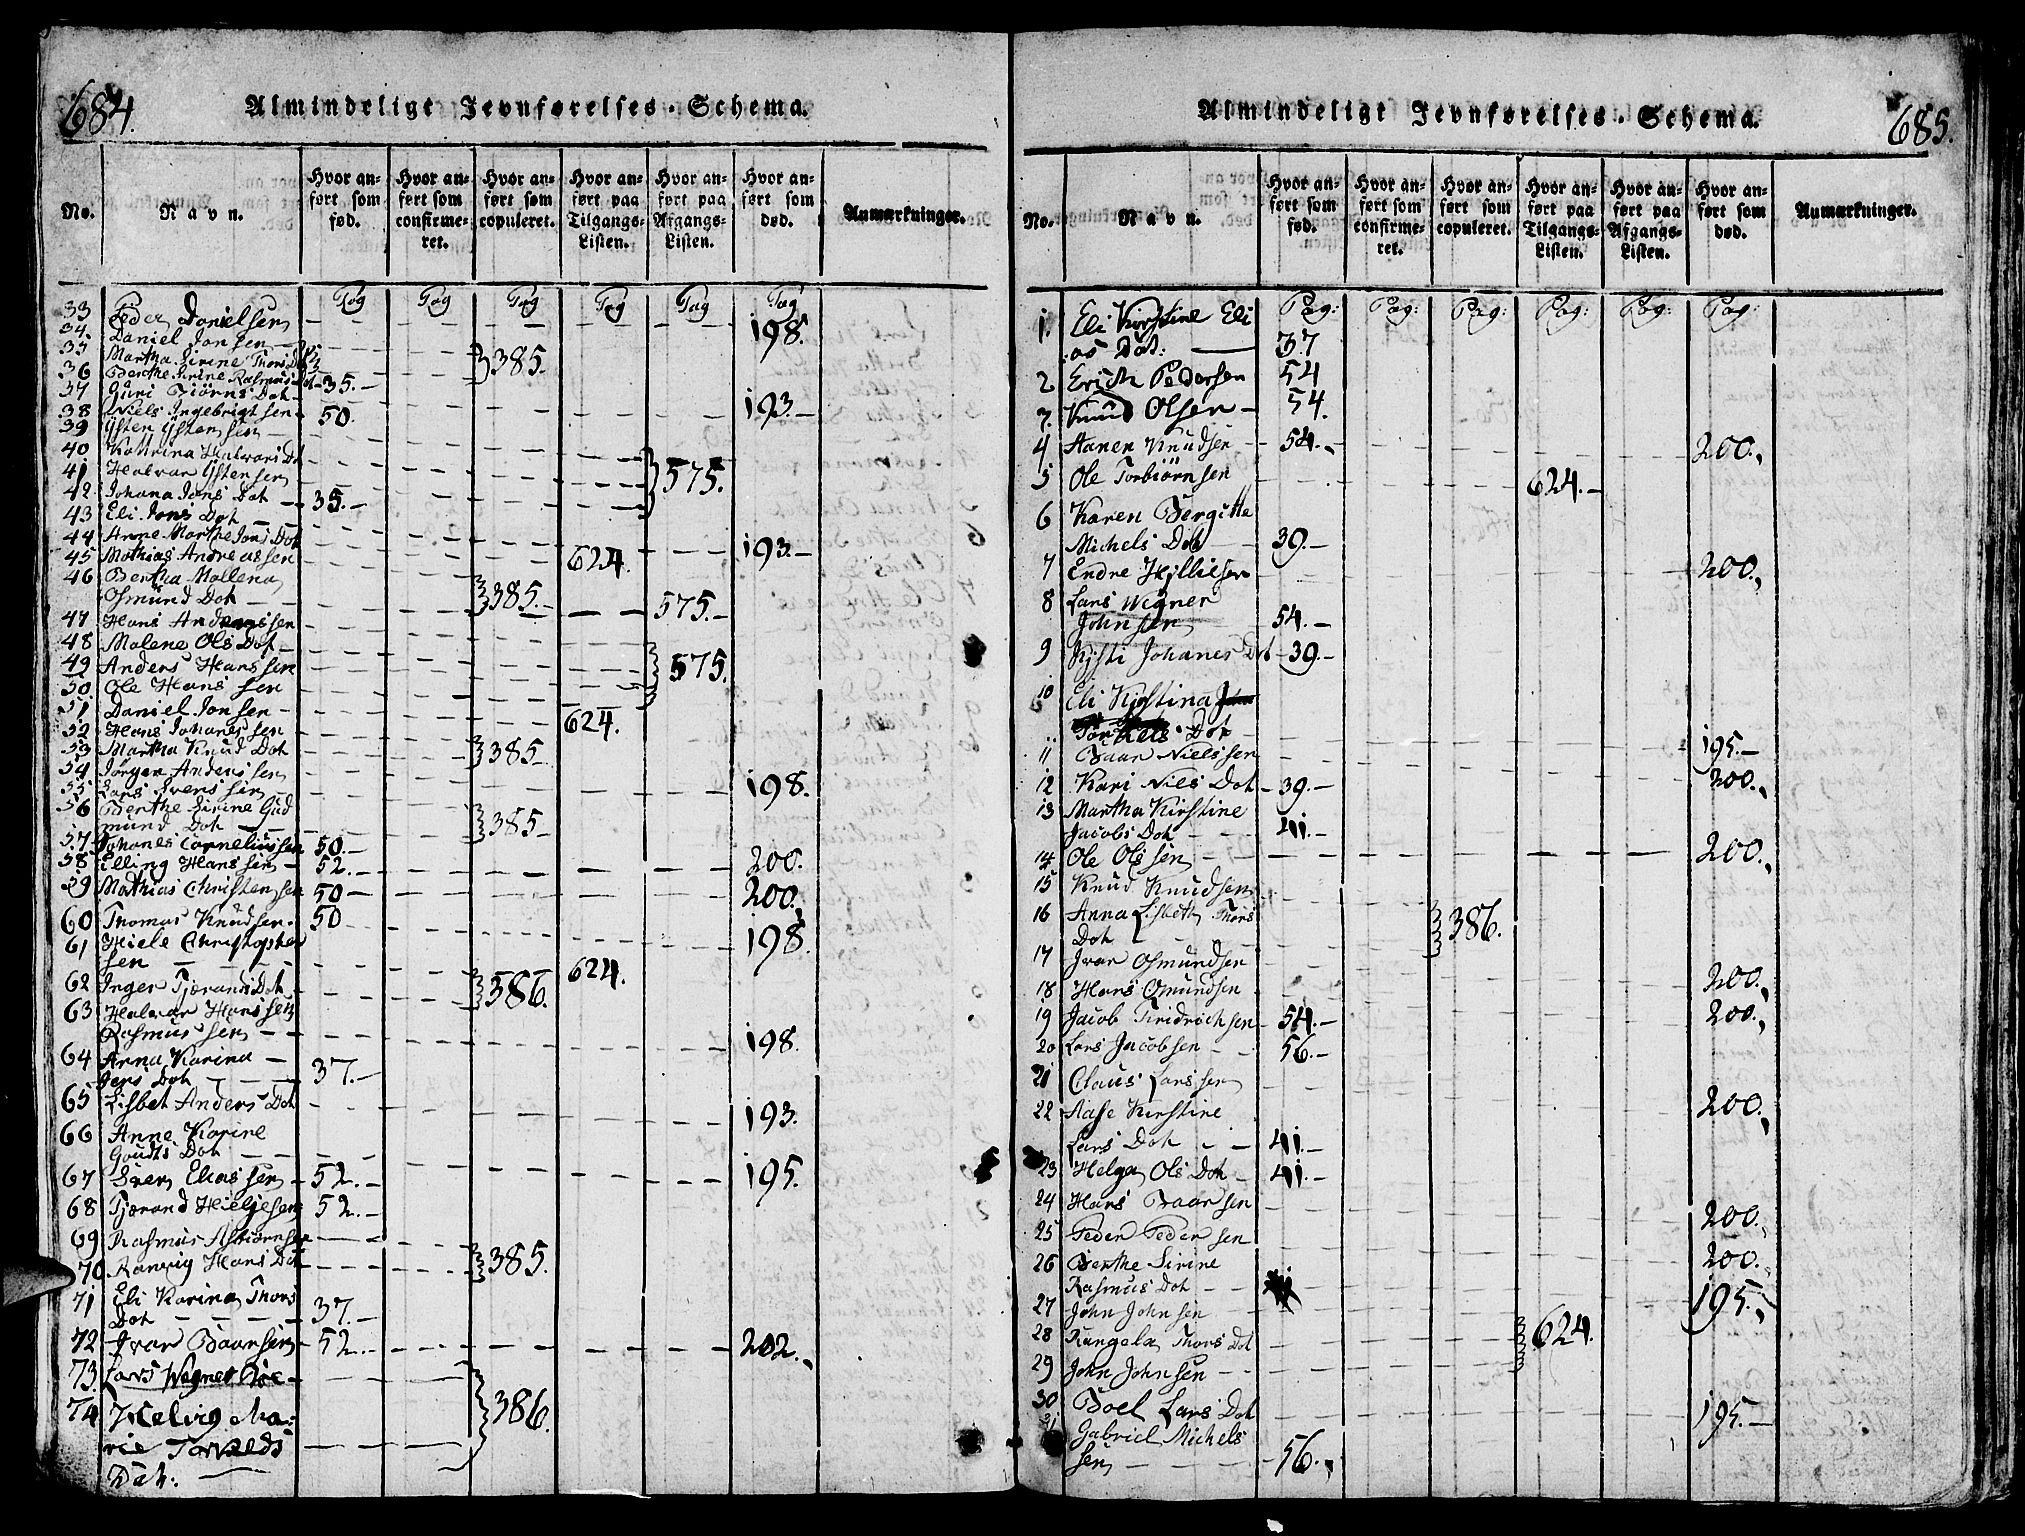 684.
Almindeligt Jevnførelses-Schema.
No. Navn. Hvor anført som fød. Hvor anført som confirmeret. Hvor anført som copuleret. Hvor anført paa Tilgangs-Listen. Hvor anført paa Afgangs-Listen. Hvor anført som død. Anmærkninger.
Pag Pag Pag Pag Pag Pag
33 Peder Danielsen 198.
34. Daniel Jonsen
35 Martha Sirine Thors Dot 385.
36 Berthe Sirine Rasmus Dot 35.
37 Guri Biørns Dot 193.
38 Niels Ingebrigtsen 50.
39 Østen Østensen
40 Kattrina Halvors Dot
41 Halvar Østensen 575.
42 Johana Jons Dot 35.
43 Eli Jons Dot
44 Anne Marthe Jons Dot 193.
45 Mathias Andreassen 624.
46 Bertha Mallena
Osmund Dot 385. 575.
47 Hans Andreassen
48 Malene Ols Dot
49 Anders Hanssen 575.
50 Ole Hanssen
51 Daniel Jonsen 624.
52 Hans Johanessen
53 Martha Knud Dot 385
54 Jørgen Anderssen
55 Lars Svenssen 198.
56 Berthe Sirine Gud
mund Dot 385
57 Johanes Corneliussen 50.
58 Elling Hanssen 52. 200.
59 Mathias Christensen 50 200.
60 Thomas Knudsen 50
61 Hiele Christopher
sen 624. 198.
62 Inger Tjærans Dot 386.
63 Halvar Hanssen
Rasmussen 198.
64 Anna Karina
Jens Dot 37.
65 Lisbet Anders Dot 193.
66 Anne Karine
Gouds Dot
67 Sven Eliassen 52. 195.
68 Tjærand Hieljesen 52.
69 Rasmus Asbiørnsen
70 Ranvig Hans Dot 385.
71 Eli Karina Thors
Dot 37.
72 Ivar Baarsen 52. 202.
73. Lars Wegner Røe
74 Helvig Ma:
rie Torkelds 386.
Dat:
685.
Almindeligt Jevnførelses-Schema.
No. Navn. Hvor anført som fød. Hvor anført som confirmeret. Hvor anført som copuleret. Hvor anført paa Tilgangs-Listen. Hvor anført paa Afgangs-Listen. Hvor anført som død. Anmærkninger.
Pag: Pag: Pag: Pag: Pag: Pag:
1. Eli Kirstine Eli
as Dat: 37
2 Erich Pedersen 54
3. Knud Olsen 54.
4 Aanen Knudsen 54. 200.
5 Ole Torbiørnsen 624.
6 Karen Bergitta
Michels Dot 39.
7 Endre Hilliesen 200.
8 Lars Wegner
Johnsen 54.
9 Kjsti Johanes Dot 39.
10 Eli Kjrstina
Torkels Dot 195.
11 Baar Nielssen 200.
12 Kari Niels Dot 39.
13 Martha Kirstine
Jacobs Dot 41.
14 Ole Olssen 200.
15 Knud Knudsen
16 Anna Lisbeth Thors
Dot 386.
17 Ivar Osmundsen 200.
18 Hans Omundsen 200.
19 Jacob Fridrichsen 54.
20 Lars Jacobsen 56.
21 Claus Larssen 200.
22 Aase Kirstine
Lars Dot 41.
23 Helga Ols Dot 41.
24 Hans Baarsen 200.
25 Peder Pedersen 200.
26 Berthe Sirine
Rasmus Dot
27 John Johnsen 195.
28 Rangela Thors Dot 624.
29 John Johnsen
30 Boel Lars Dot 195.
31 Gabriel Michels
sen 56.